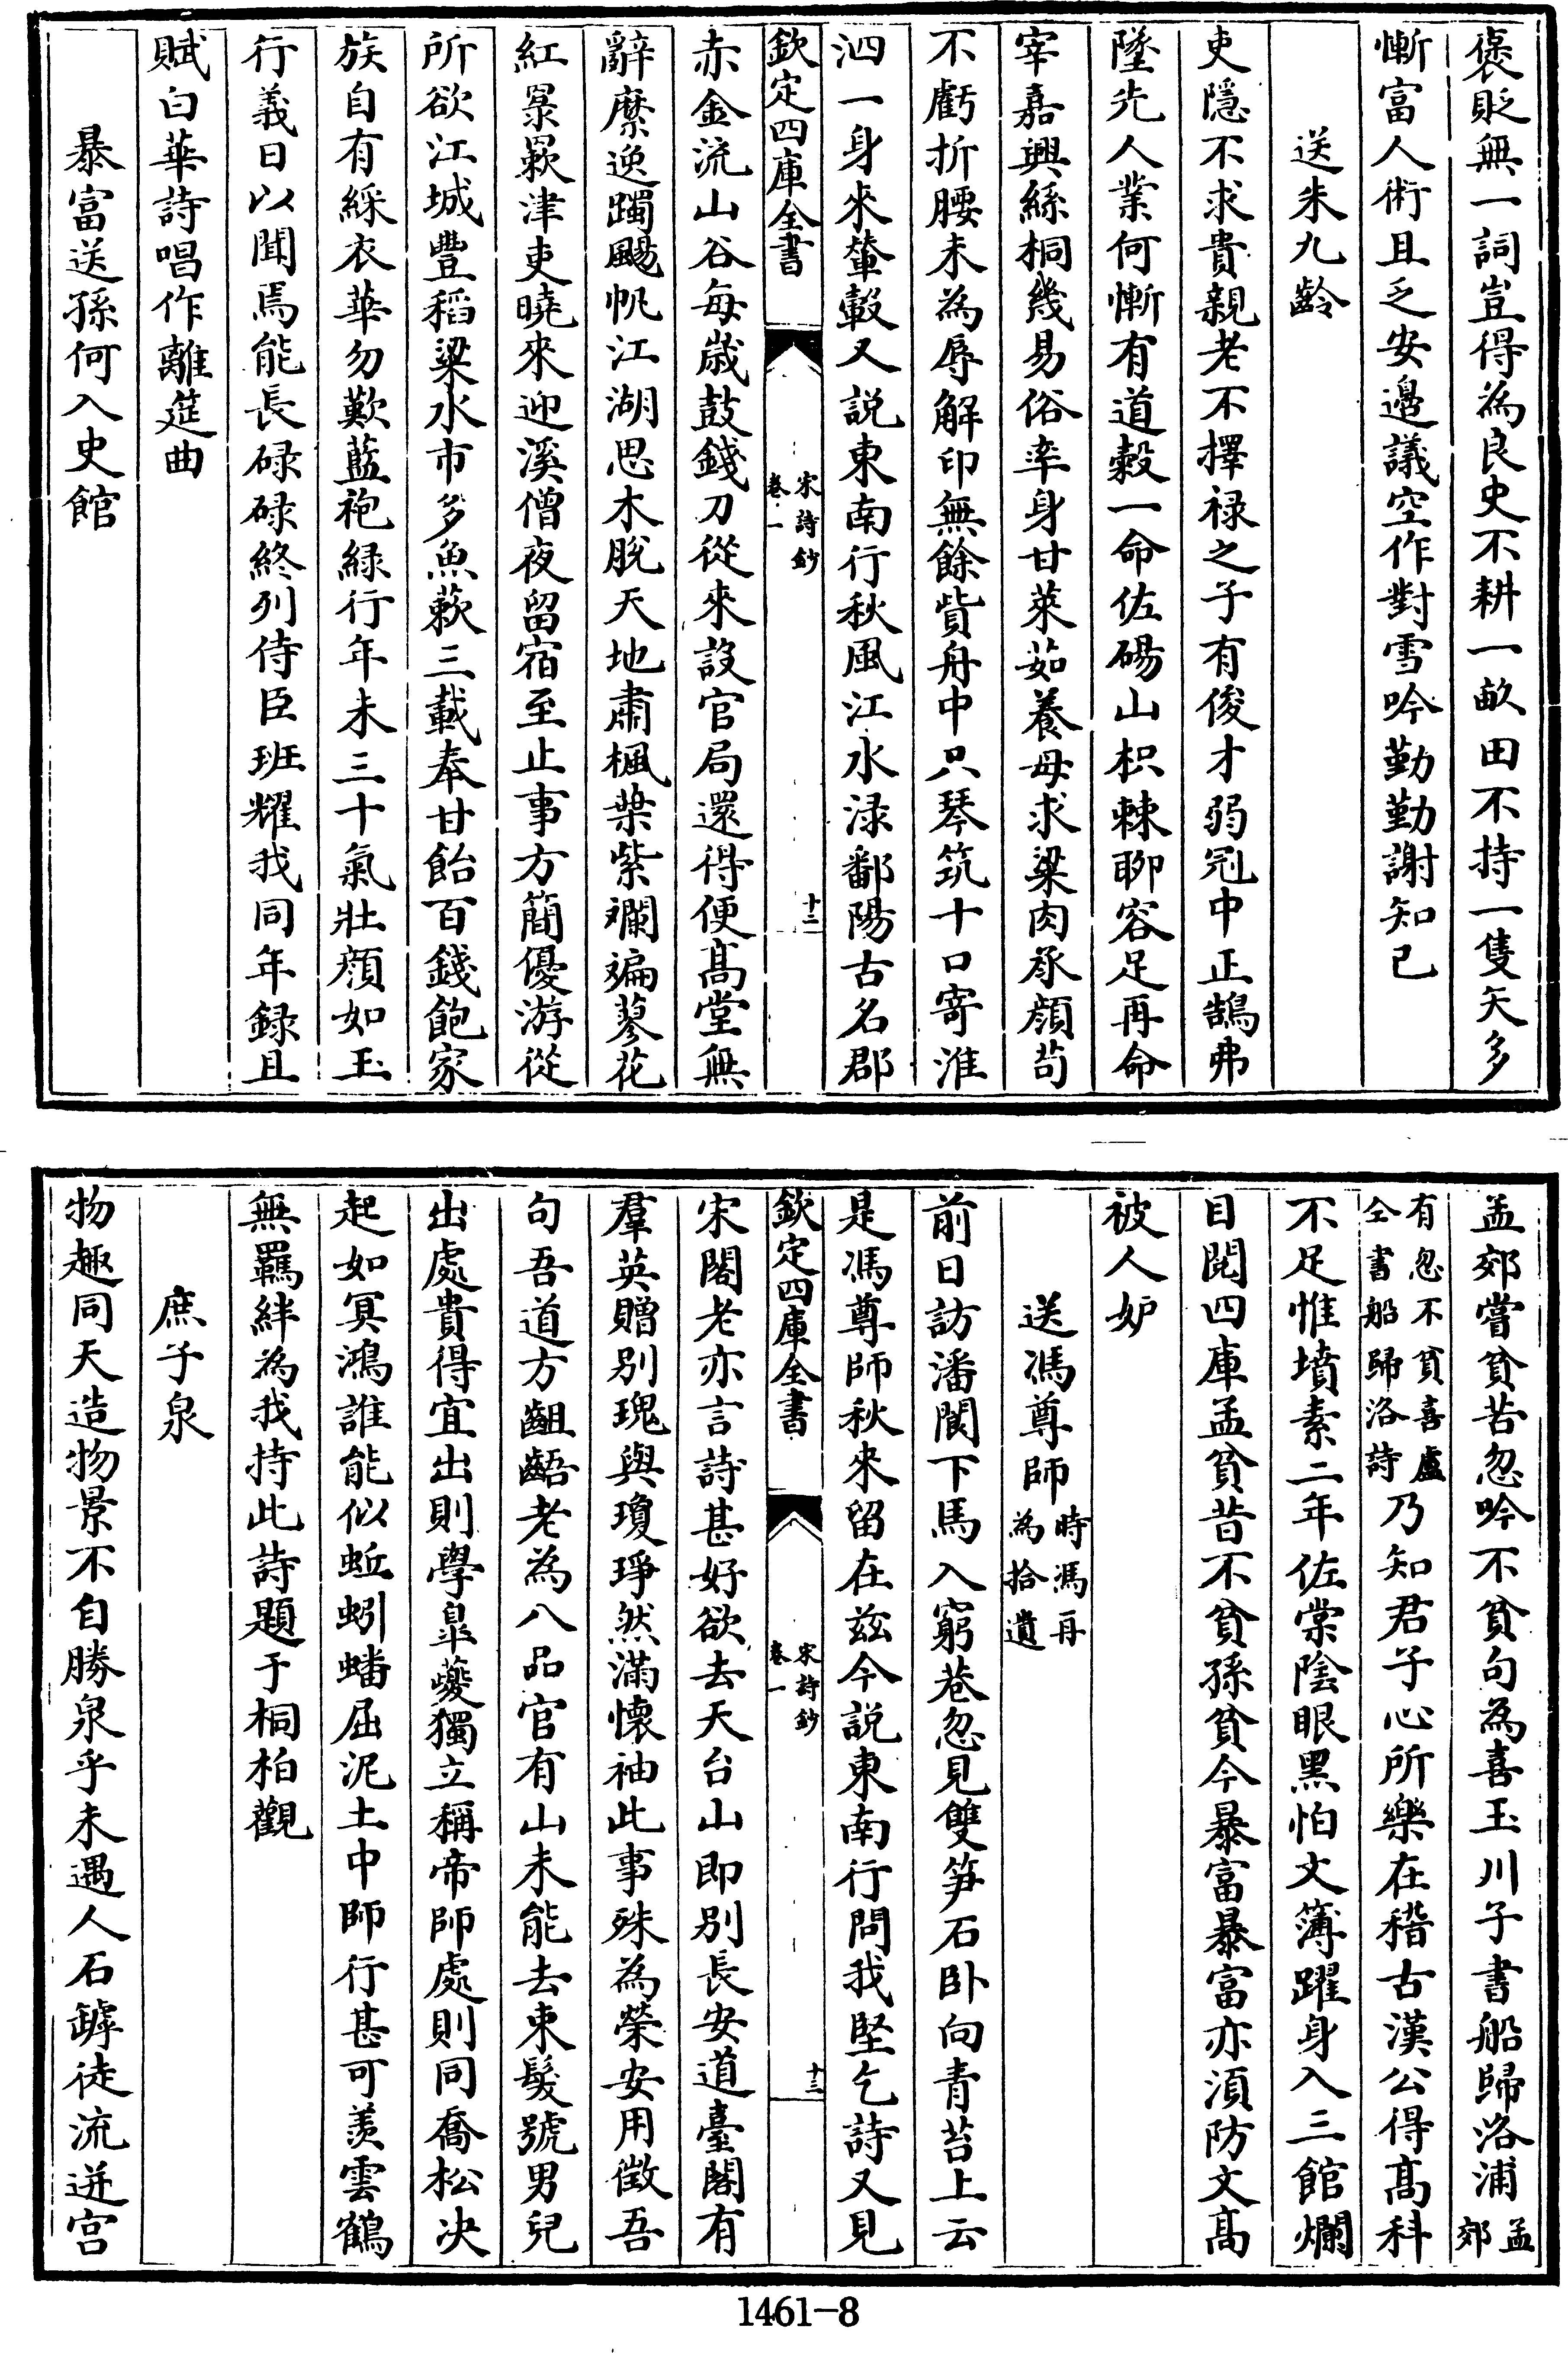 褒貶無一詞豈得為良史不耕一畝田不持一隻矢多
慚富人術且乏安邊議空作對雪吟勤勤謝知己
送朱九齡
吏隱不求貴親老不擇禄之子有俊才弱冠中正鵠弗
墜先人業何慚有道穀一命佐碭山枳棘聊容足再命
宰嘉興絲桐幾易俗率身甘菜茹養母求粱肉承顔苟
不虧折腰未為辱解印無餘貲舟中只琴筑十口寄淮
泗一身來輦轂又説東南行秋風江水渌鄱陽古名郡
欽定四庫全書
宋詩鈔
卷一
十二
赤金流山谷每歳鼓錢刀從來設官局還得便髙堂無
辭縻逆躅颺帆江湖思木脱天地肅楓葉紫斕斒蓼花
紅㬥䍡津吏曉來迎溪僧夜留宿至止事方簡優游從
所欲江城豐稻粱水市多魚蔌三載奉甘飴百錢飽家
族自有綵衣華勿歎藍袍緑行年未三十氣壯顔如玉
行義日以聞焉能長碌碌終列侍臣班耀我同年録且
賦白華詩唱作離筵曲
暴富送孫何入史館
孟郊嘗貧苦忽吟不貧句為喜玉川子書船歸洛浦孟郊
有忽不貧喜盧
仝書船歸洛詩乃知君子心所樂在稽古漢公得髙科
不足惟墳素二年佐棠陰眼黑怕文簿躍身入三館爛
目閲四庫孟貧昔不貧孫貧今暴富暴富亦須防文髙
被人妒
送馮尊師時馮再為拾遺
前日訪潘閬下馬入窮巷忽見雙笋石卧向青苔上云
是馮尊師秋來留在兹今説東南行問我堅乞詩又見
欽定四庫全書
宋詩鈔
卷一
十三
宋閣老亦言詩甚好欲去天台山即别長安道臺閣有
羣英贈别瑰與瓊琤然滿懷袖此事殊為榮安用徴吾
句吾道方齟齬老為八品官有山未能去束髮號男兒
出處貴得宜出則學臯夔獨立稱帝師處則同喬松决
起如冥鴻誰能似蚯蚓蟠屈泥土中師行甚可羡雲鶴
無羈絆為我持此詩題于桐柏觀
庶子泉
物趣同天造物景不自勝泉乎未遇人石罅徒流迸宫
1461-8